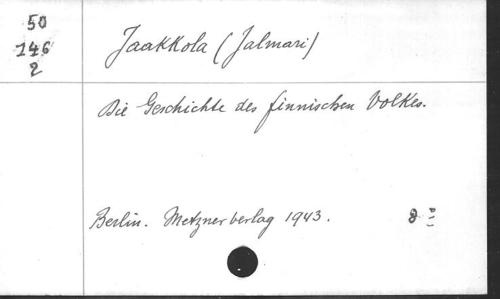 50
146
2
Jaakkola (Jalmari)
Die Geschichte des finnischen Volkes.
Berlin. Metzner Verlag 1943. 8 =